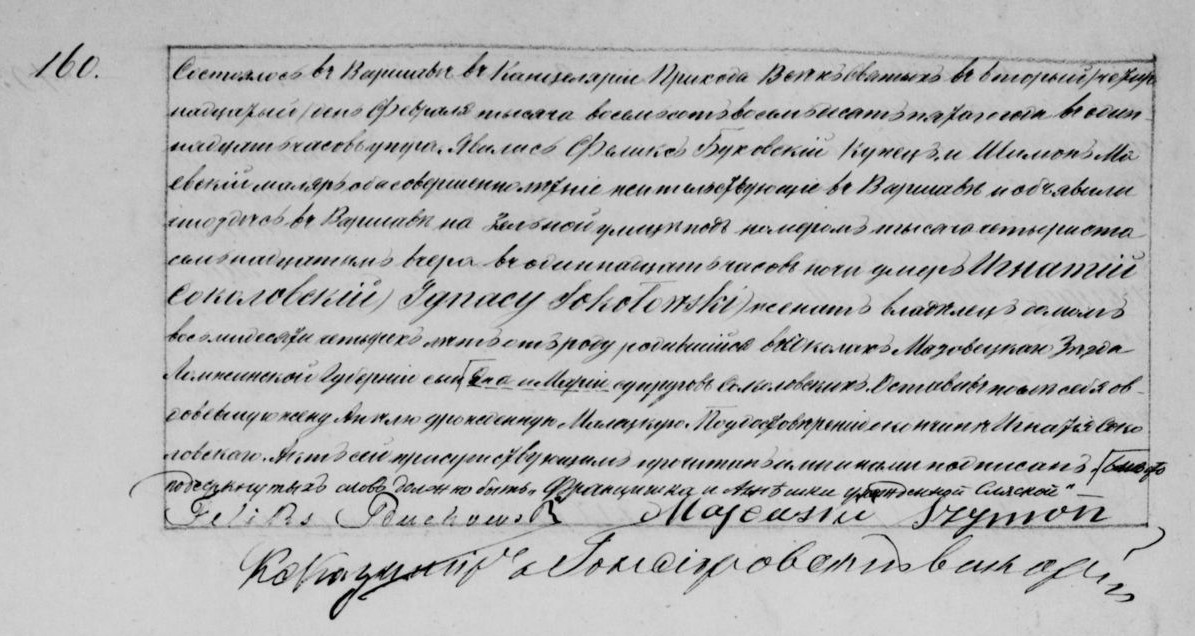 160.
Состоялось въ Варшавѣ въ Канцеляріи Прихода Всѣхъ Святыхъ въ вторый/четыр-
надцатый/день Февраля тысяча восемьсотъ восемьдесятъ пятаго года въ один-
надцать часовъ утра. Явились Феликсъ Буховскій Купецъ и Шимонъ Ма
евскій маляръ оба совершеннолѣтніе жительствующіе въ Варшавѣ и объявили
что здѣсь въ Варшавѣ на Желѣзной улицѣ подъ номеромъ тысяча четыриста
семьнадцатымъ вчера въ одиннадцать часовъ ночи умеръ Игнатій
Соколовскій (Ignacy Sokołowski) женатъ владѣлецъ домомъ
восьмидесяти четырехъ лѣтъ отъ роду родившійся въ Маѕовецкаго Уѣзда
Ломжинской Губерніи сынъ и Маріи супруговъ Соколовскихъ. Оставивъ послѣ себя ов-
довѣвшую жену Анклю урожденную. По удостовѣреніи о кончинѣ Игнатія Соко
ловскаго. Актъ сей присутствующимъ прочитанъ ими и нами подписанъ. Вмѣсто
подчеркнутыхъ словъ должно быть „Францишка и Агнѣшки урожденной Сляской"
Feliks Buchowski Majewski Szymon